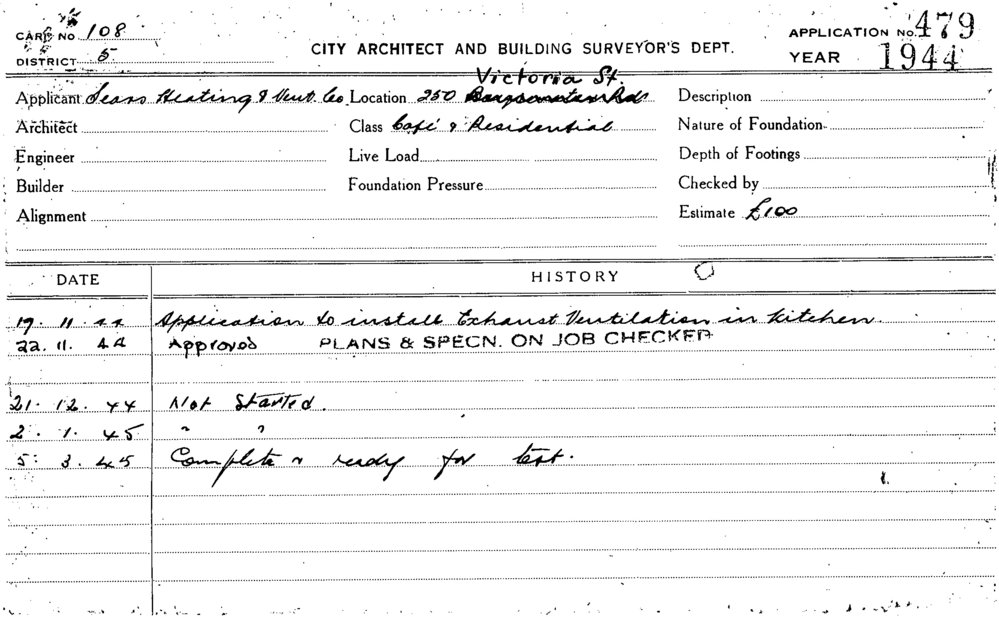 CARD NO 108
DISTRICT 5
CITY ARCHITECT AND BUILDING SURVEYOR'S DEPT.
APPLICATION No. 479
YEAR 1944
Victoria St.
Applicant Sears Heating & Vent. Co. Location 250 Description
Architect Class Café & Residential Nature of Foundation
Engineer Live Load Depth of Footings
Builder Foundation Pressure Checked by
Alignment Estimate £100
DATE HISTORY
17. 11. 44 Application to install Exhaust Ventilation in kitchen.
22. 11. 44 Approved PLANS & SPECN. ON JOB CHECKED
21. 12. 44 Not Started.
2. 1. 45 " "
5. 3. 45 Complete & ready for test.